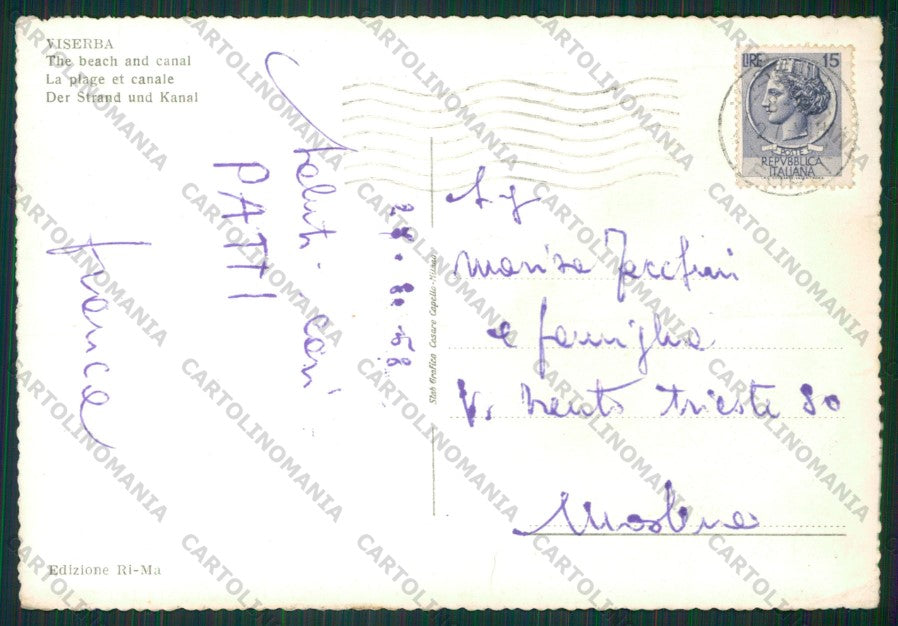 VISERBA
The beach and canal
La plage et canale
Der Strand und Kanal
Saluti cari
PATTI
Franca
29.8.58
Stab Grafico Cesare Capello-Milano
LIRE 15
POSTE
REPVBBLICA
ITALIANA
Marisa Zecchini
e famiglia
V. Trento Trieste 80
Modena
Edizione Ri-Ma
CARTOLINOMANIA